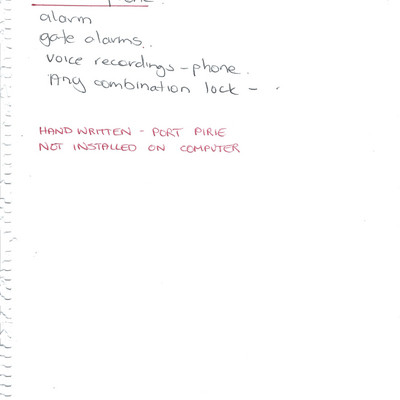 alarm
gate alarms..
voice recordings - phone.
Any combination lock -
HAND WRITTEN - PORT PIRIE
NOT INSTALLED ON COMPUTER